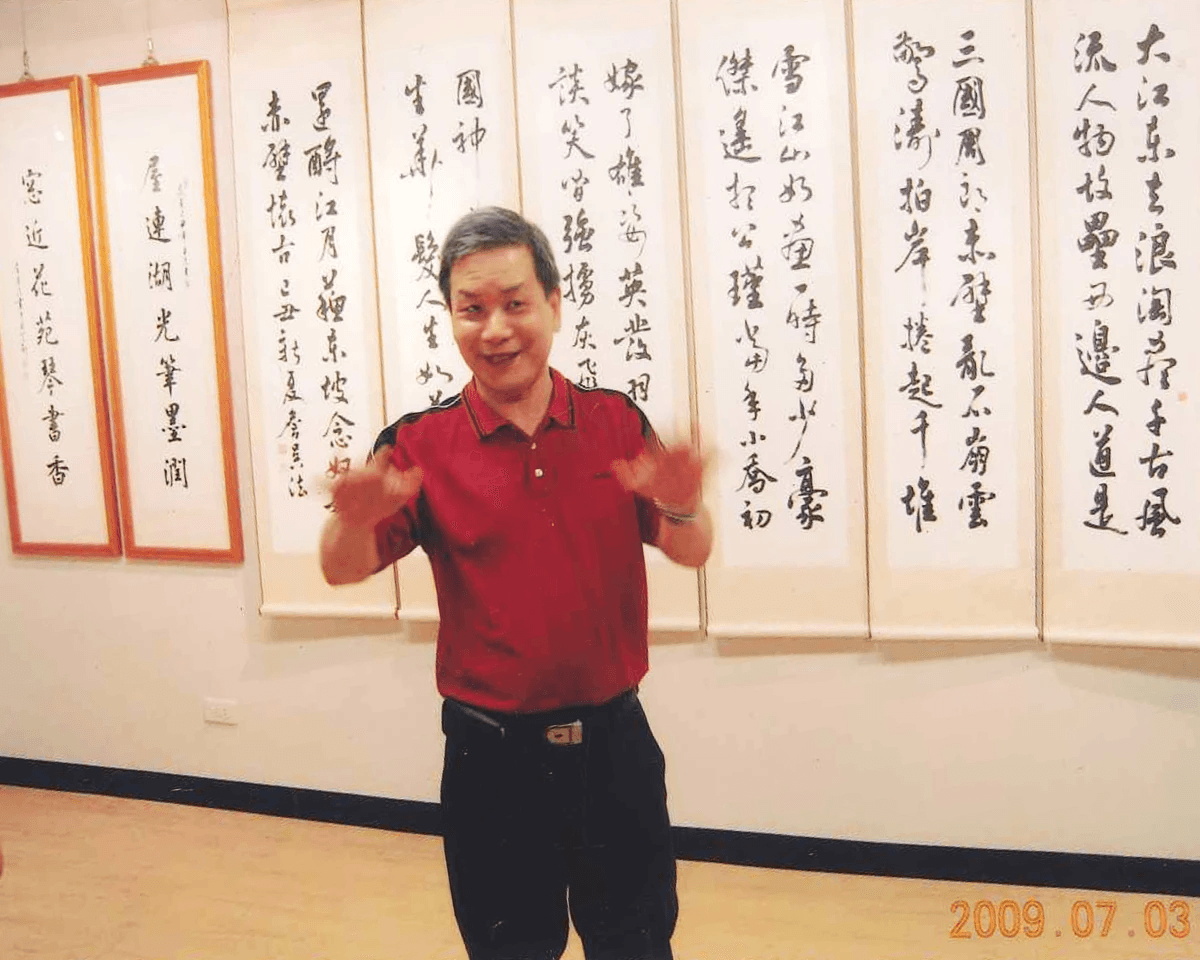 大江東去浪淘盡千古風
流人物故壘西邊人道是
三國周郎赤壁亂石崩雲
驚濤拍岸捲起千堆
雪江山如畫一時多少豪
傑遙想公瑾當年小喬初
嫁了雄姿英發羽
談笑間強擄灰飛
國神
生華髮人生如
還酹江月蘇東坡念奴
赤壁懷古己丑新夏詹吳法
屋連湖光筆墨潤
窓近花苑琴書香
2009.07.03